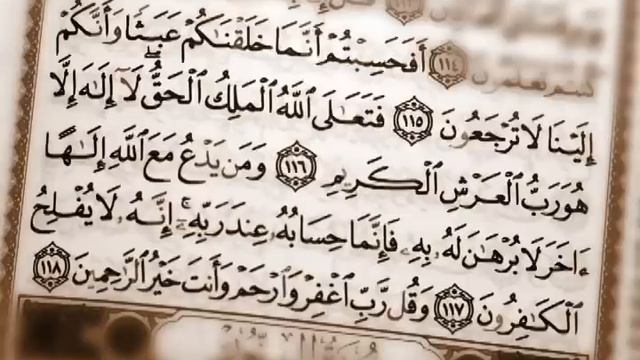 كنتم تعلمون ١١٤ أَفَحَسِبْتُمْ أَنَّمَا خَلَقْنَٰكُمْ عَبَثًا وَأَنَّكُمْ
إِلَيْنَا لَا تُرْجَعُونَ ١١٥ فَتَعَٰلَى ٱللَّهُ ٱلْمَلِكُ ٱلْحَقُّ ۖ لَآ إِلَٰهَ إِلَّا
هُوَ رَبُّ ٱلْعَرْشِ ٱلْكَرِيمِ ١١٦ وَمَن يَدْعُ مَعَ ٱللَّهِ إِلَٰهًا
ءَاخَرَ لَا بُرْهَٰنَ لَهُۥ بِهِۦ فَإِنَّمَا حِسَابُهُۥ عِندَ رَبِّهِۦٓ ۚ إِنَّهُۥ لَا يُفْلِحُ
ٱلْكَٰفِرُونَ ١١٧ وَقُل رَّبِّ ٱغْفِرْ وَٱرْحَمْ وَأَنتَ خَيْرُ ٱلرَّٰحِمِينَ ١١٨